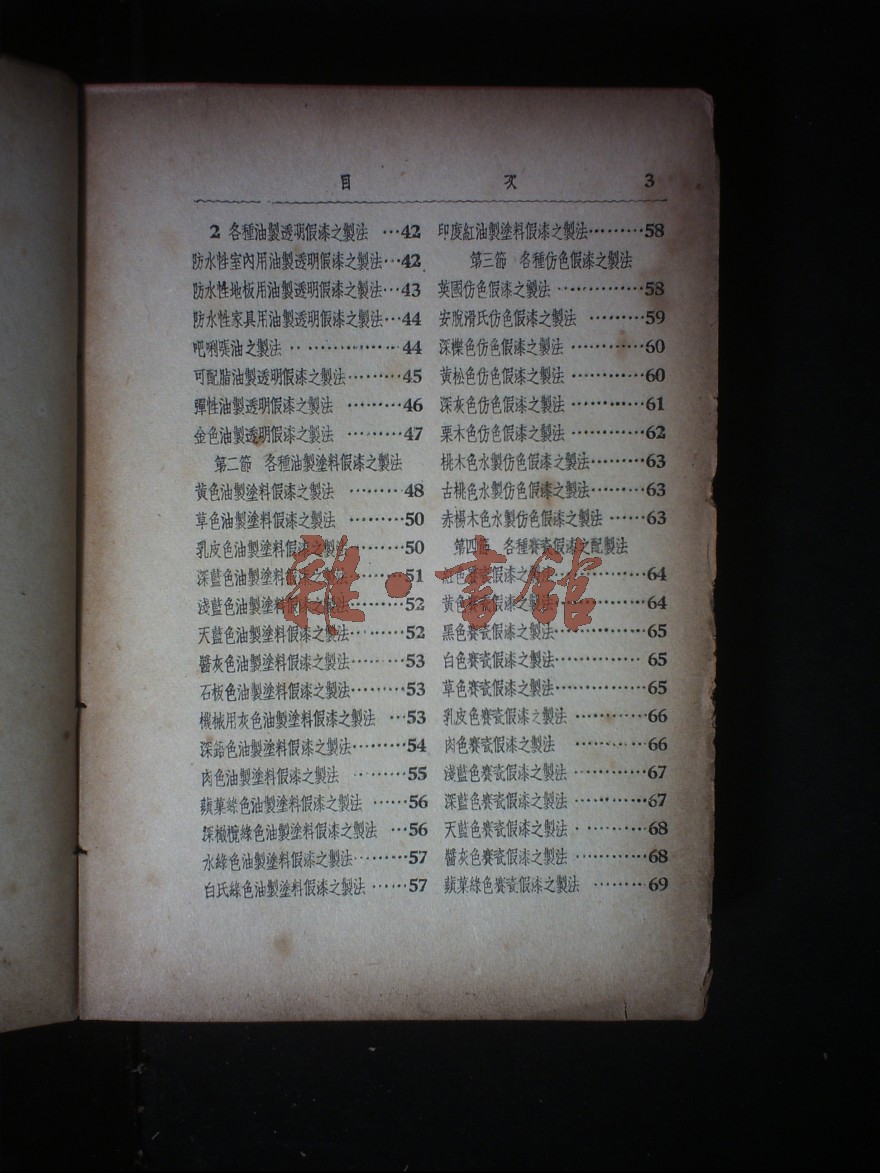 目 次 3
2 各種油製透明假漆之製法 …42
防水性室內用油製透明假漆之製法…42
防水性地板用油製透明假漆之製法…43
防水性家具用油製透明假漆之製法…44
吧唎張油之製法…………44
可配脂油製透明假漆之製法………45
彈性油製透明假漆之製法 ………46
金色油製透明假漆之製法 ………47
第二節 各種油製塗料假漆之製法
黃色油製塗料假漆之製法 ………48
草色油製塗料假漆之製法 ………50
乳皮色油製塗料假漆之製法………50
深藍色油製塗料假漆之製法………51
淺藍色油製塗料假漆之製法………52
天藍色油製塗料假漆之製法………52
醬灰色油製塗料假漆之製法………53
石板色油製塗料假漆之製法………53
機械用灰色油製塗料假漆之製法 …53
深鉛色油製塗料假漆之製法………54
肉色油製塗料假漆之製法 ………55
蘋菓綠色油製塗料假漆之製法 ……56
深橄欖綠色油製塗料假漆之製法 …56
水綠色油製塗料假漆之製法………57
白氏綠色油製塗料假漆之製法 ……57
印度紅油製塗料假漆之製法………58
第三節 各種仿色假漆之製法
英國仿色假漆之製法 …………58
安脫滑氏仿色假漆之製法 ………59
深櫟色仿色假漆之製法 …………60
黃松色仿色假漆之製法 …………60
深灰色仿色假漆之製法 …………61
栗木色仿色假漆之製法 …………62
桃木色水製仿色假漆之製法………63
古桃色水製仿色假漆之製法………63
赤楊木色水製仿色假漆之製法 ……63
第四節 各種賽瓷假漆之配製法
紅色賽瓷假漆之製法…………64
黃色賽瓷假漆之製法…………64
黑色賽瓷假漆之製法…………65
白色賽瓷假漆之製法………… 65
草色賽瓷假漆之製法…………65
乳皮色賽瓷假漆之製法 …………66
肉色賽瓷假漆之製法 …………66
淺藍色賽瓷假漆之製法 …………67
深藍色賽瓷假漆之製法 …………67
天藍色賽瓷假漆之製法 …………68
醬灰色賽瓷假漆之製法 …………68
蘋菓綠色賽瓷假漆之製法 ………69
雜·書館